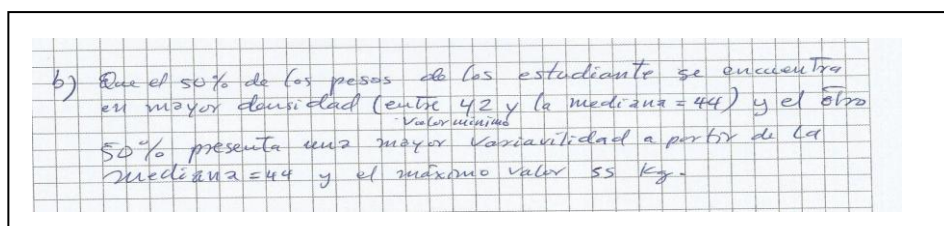 b) Que el 50% de los pesos de los estudiante se encuentra
en mayor densidad (entre 42 y la mediana = 44) y el otro
valor mínimo
50% presenta una mayor variavilidad a partir de la
mediana = 44 y el máximo valor 55 kg.